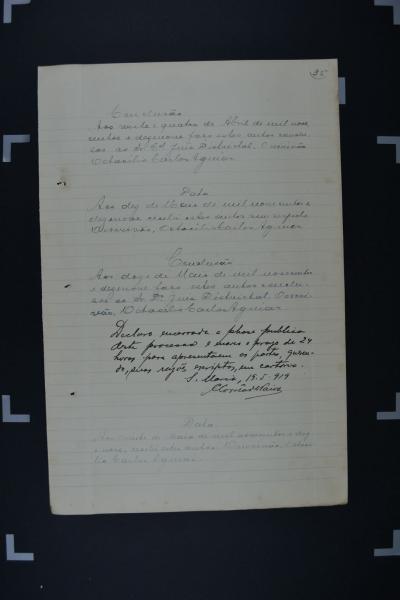 95
Conclusão
Aos vinte e quatro de Abril de mil nove
centos e dezenove faço estes autos conclu
sos ao dr. Juiz Districtal. O escrivão
Octacilio Carlos Aguiar
Data
Aos dez de Maio de mil novecentos e
dezenove recebi estes autos sem
Escrivão, Octacilio Carlos Aguiar
Conclusão
Aos doze de Maio de mil novecentos
e dezenove faço estes autos conclu
sos ao dr. Juiz Districtal. O escri
vão, Octacilio Carlos Aguiar
Declaro encerrada a phase publica
deste processo e marco o prazo de 24
horas para apresentarem as partes, queren
do, suas razões escriptas, em cartorio.
S. Maria, 19.5.919
Data
de Maio de mil novecentos e dez
enove, recebi estes autos. O escrivão, Octaci
lio Carlos Aguiar